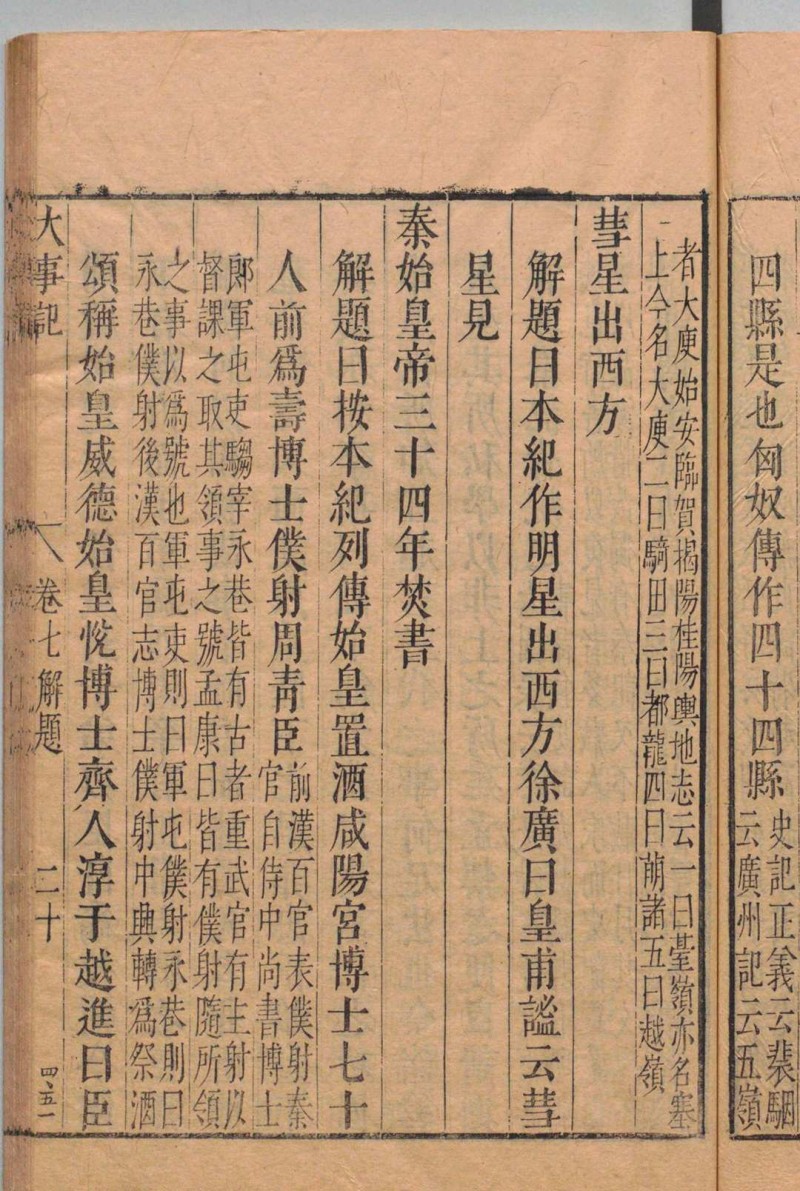 四縣是也匈奴傳作四十四縣史記正義云裴駰
云廣州記云五嶺
者大庾始安臨賀揭陽桂陽輿地志云一曰臺嶺亦名塞
上今名大庾二曰騎田三曰都龐四曰萌諸五曰越嶺
彗星出西方
解題曰本紀作明星出西方徐廣曰皇甫謐云彗
星見
秦始皇帝三十四年焚書
解題曰按本紀列傳始皇置酒咸陽宮博士七十
人前爲壽博士僕射周青臣前漢百官表僕射秦
官自侍中尚書博士
郞軍屯吏騶宰永巷皆有古者重武官有主射以
督課之取其領事之號孟康曰皆有僕射隨所領
之事以爲號也軍屯吏則曰軍屯僕射永巷則曰
永巷僕射後漢百官志博士僕射中興轉爲祭酒
頌稱始皇威德始皇悅博士齊人淳于越進曰臣
大事記 卷七解題 二十 四五一